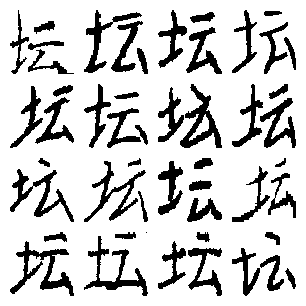 坛坛坛坛
坛坛坛坛
坛坛坛坛
坛坛坛坛